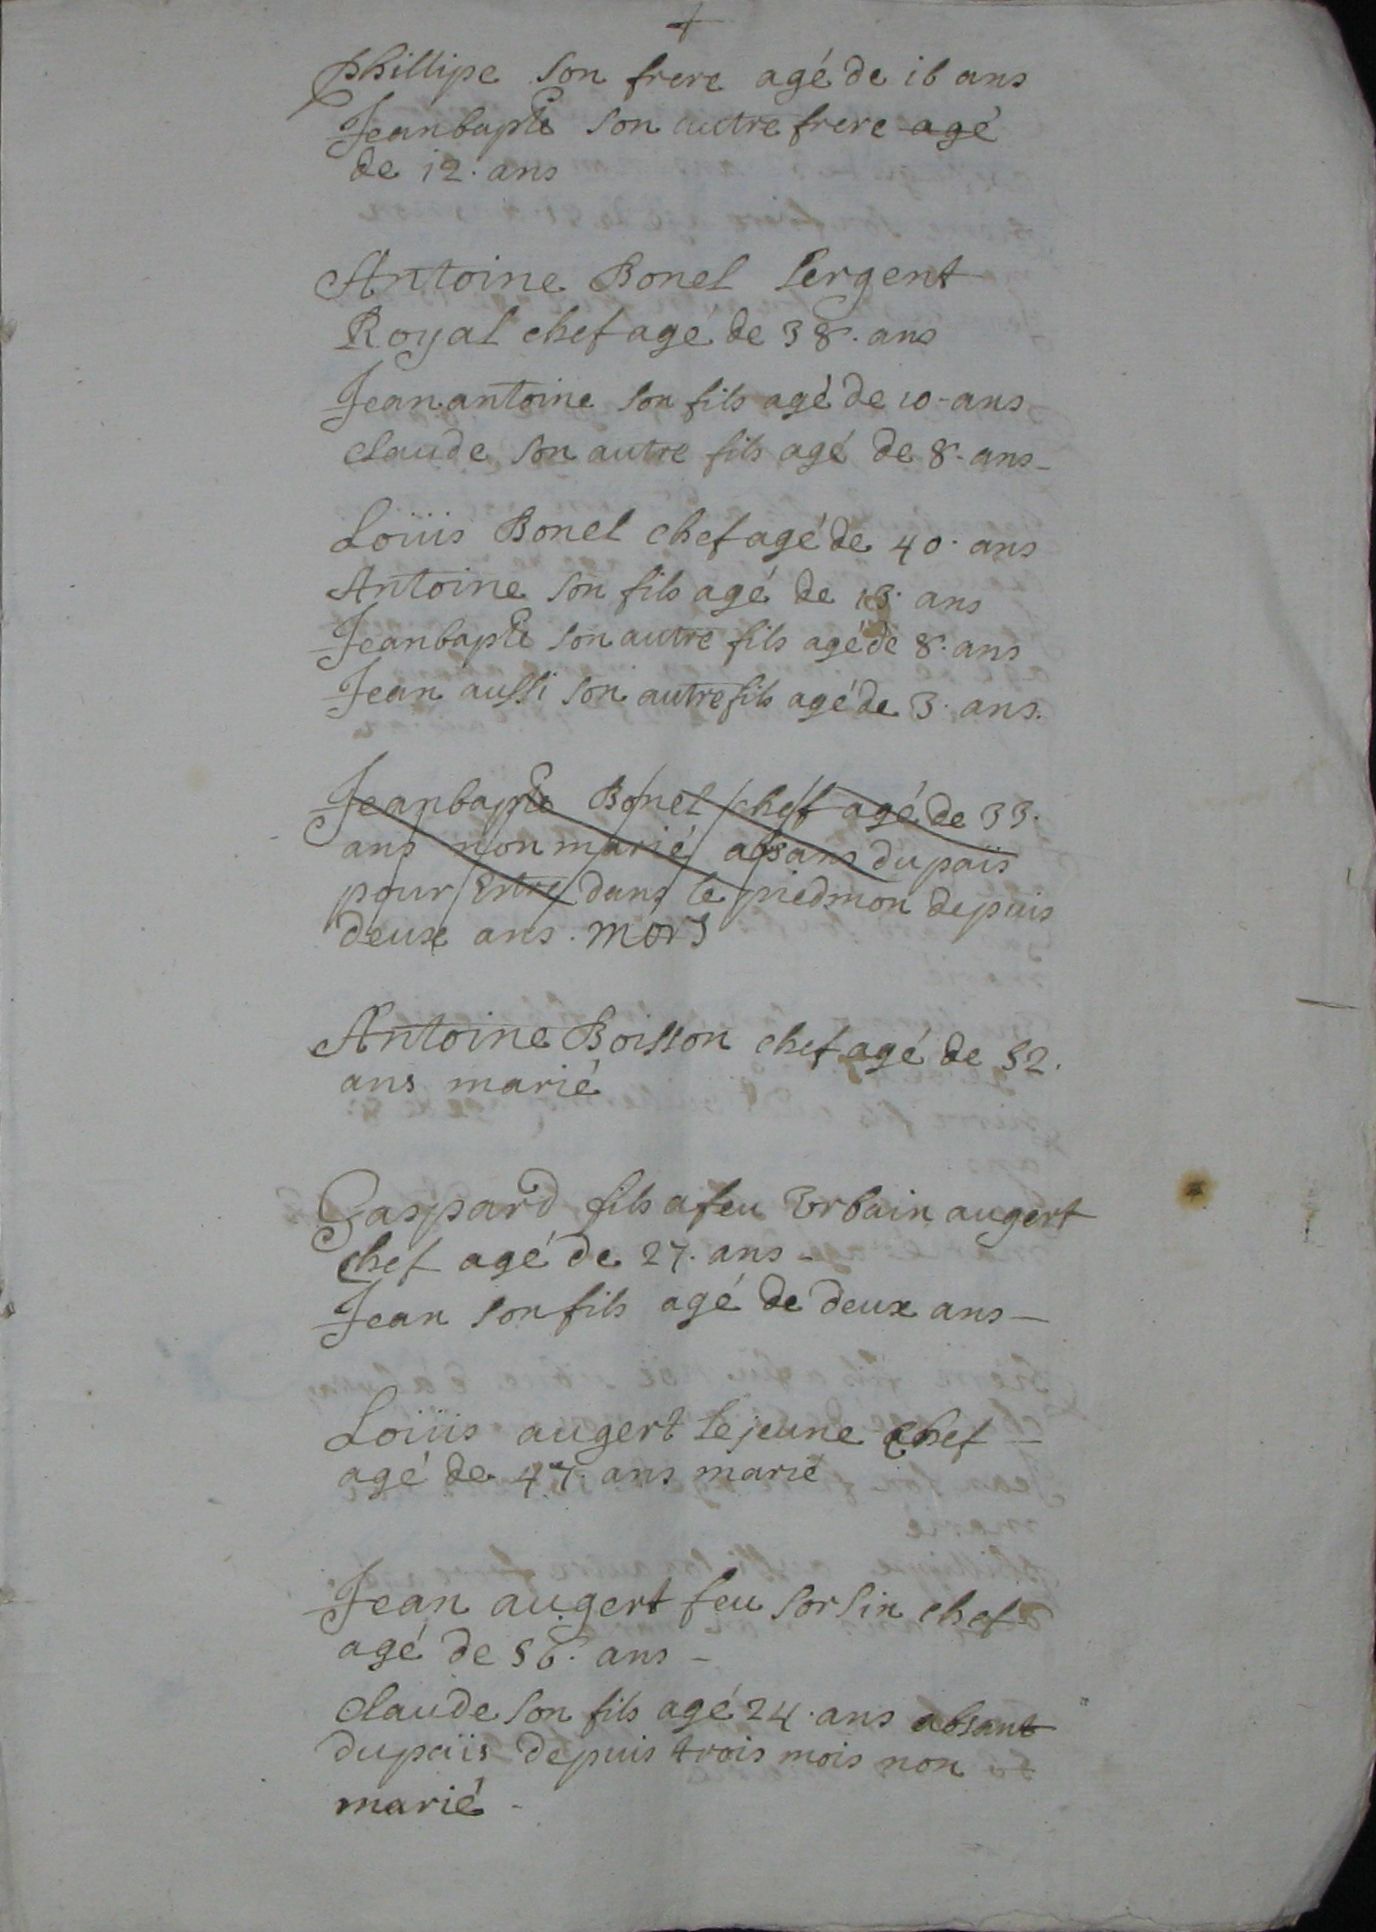 +
phillipe son frere agé de 16 ans
Jeanbapte son autre frere agé
de 12. ans
Antoine Bonel Sergent
Royal chef agé de 38. ans
Jean antoine son fils agé de 10-ans
claude son autre fils agé de 8. ans-
Loüis Bonel chef agé de 40. ans
Antoine son fils agé de 13. ans
Jeanbapte son autre fils agé de 8. ans
Jean aussi son autre fils agé de 3. ans.
Jeanbapte Bonel chef agé de 33.
ans non marié absans du païs
pour estre dans le piedmon depuis
deux ans. mors
Antoine Boisson chef agé de 52.
ans marié
Gaspard fils a feu Vrbain augert
chef agé de 27. ans -
Jean son fils agé de deux ans -
Loüis augert le jeune chef -
agé de 47. ans marié
Jean augert feu sorlin chef
agé de 56. ans -
claude son fils agé 24. ans absant
du païs depuis trois mois non
marié -